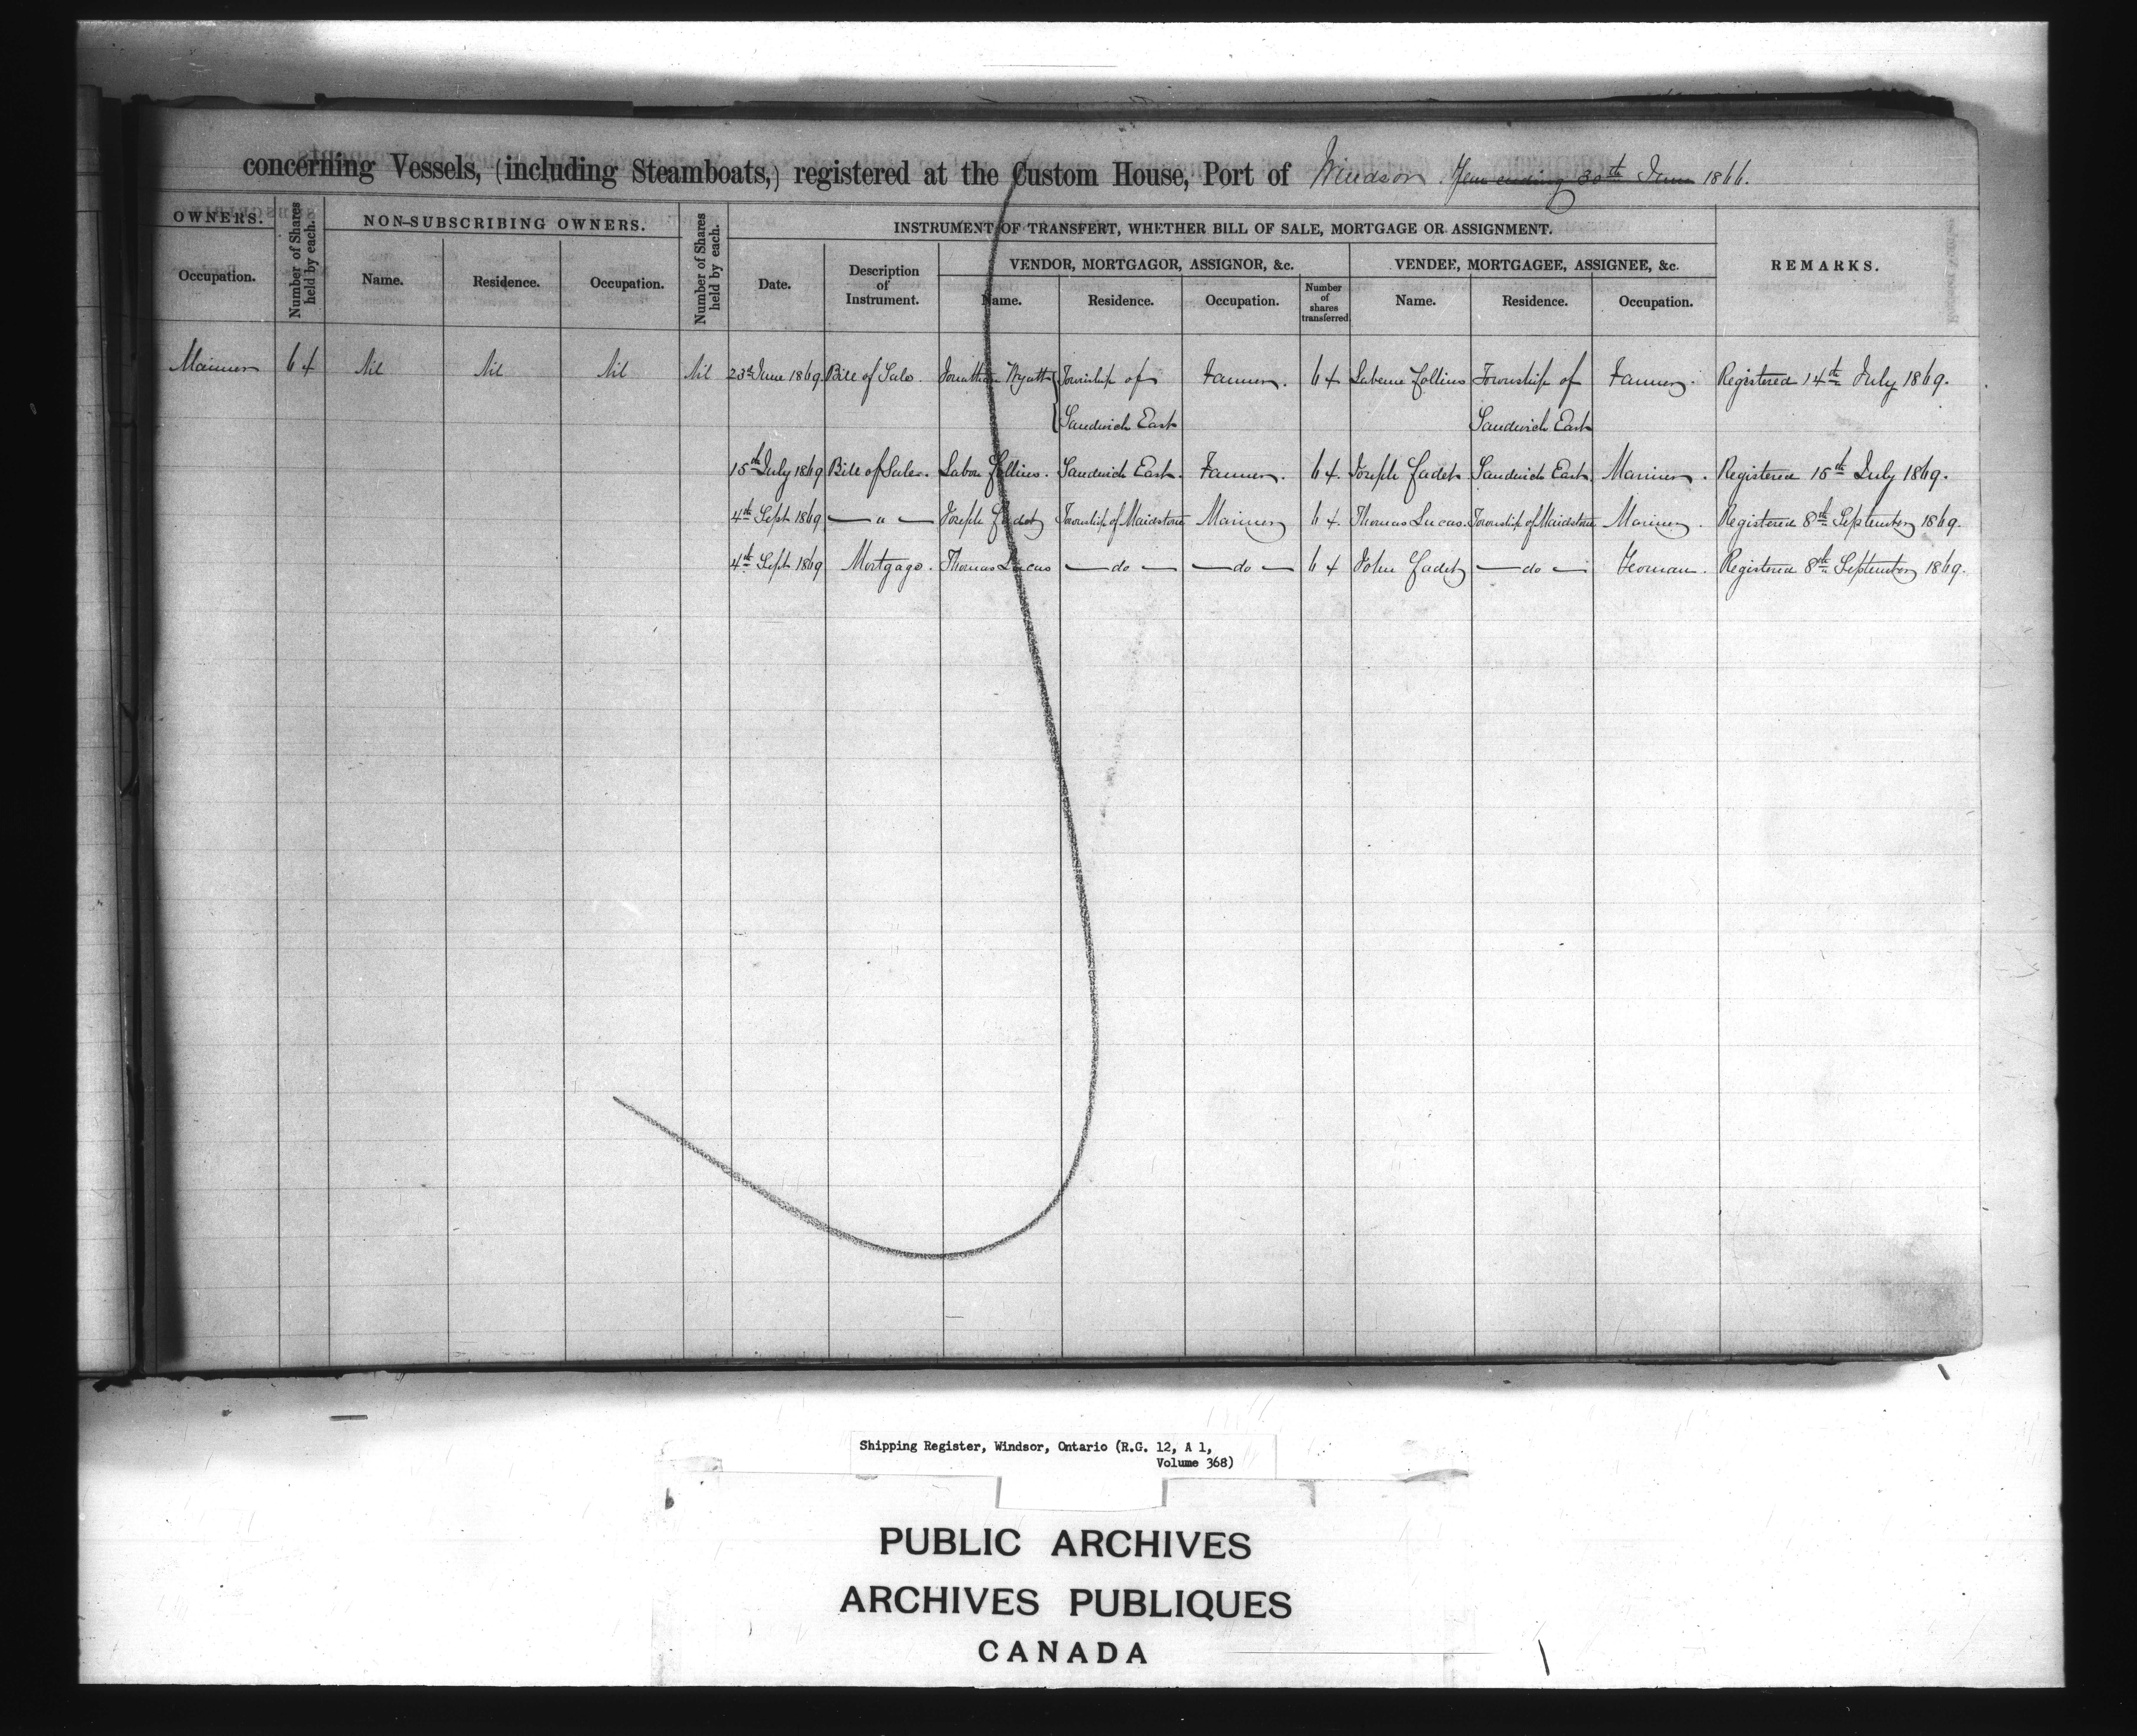 concerning Vessels, (including Steamboats,) registered at the Custom House, Port of Windsor. Year ending 30th June 1866.
OWNERS. Number of Shares held by each. NON-SUBSCRIBING OWNERS. Number of Shares held by each. INSTRUMENT OF TRANSFERT, WHETHER BILL OF SALE, MORTGAGE OR ASSIGNMENT. REMARKS.
VENDOR, MORTGAGOR, ASSIGNOR, &c. VENDEE, MORTGAGEE, ASSIGNEE, &c.
Occupation. Name. Residence. Occupation. Date. Description of Instrument. Name. Residence. Occupation. Number of shares transferred Name. Residence. Occupation.
Mariner 64 Nil Nil Nil Nil 23rd June 1869 Bill of Sale. Jonathan Wyatt Township of Farmer. 64 Laberne Collins Township of Farmer. Registered 14th July 1869.
Sandwich East Sandwich East
15th July 1869 Bill of Sale. Labon Collins. Sandwich East. Farmer. 64. Joseph Cadet Sandwich East. Mariner. Registered 15th July 1869.
4th Sept 1869 — " — Joseph Cadet Township of Maidstone Mariner 64. Thomas Lucas. Township of Maidstone Mariner. Registered 8th September 1869.
4th Sept 1869 Mortgage. Thomas Lucas — do — — do — 64 John Cadet — do — Yeoman. Registered 8th September 1869.
Shipping Register, Windsor, Ontario (R.G. 12, A 1,
Volume 368)
PUBLIC ARCHIVES
ARCHIVES PUBLIQUES
CANADA